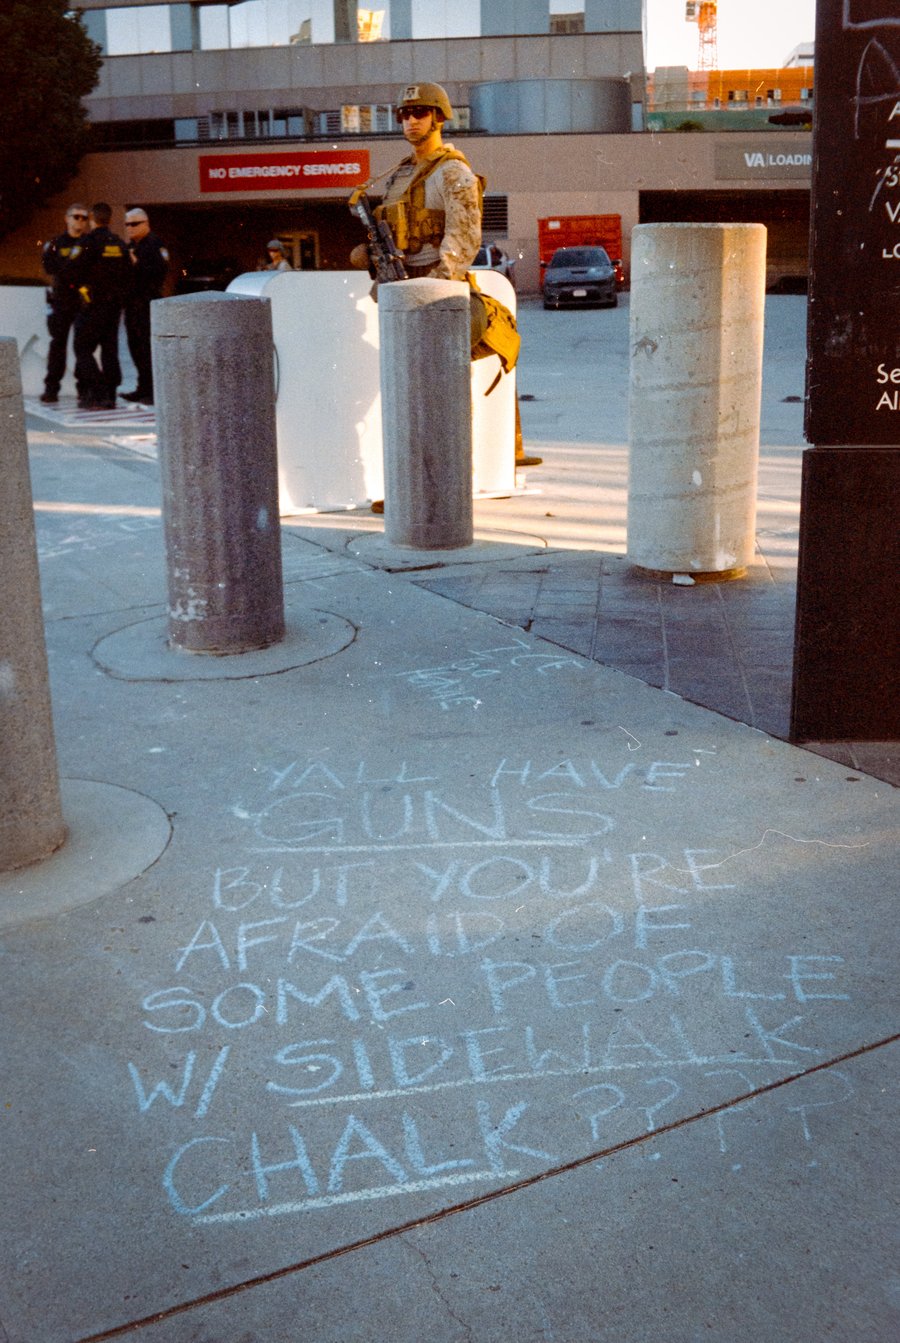 NO EMERGENCY SERVICES
VA LOADIN
Se
All
ICE
GO
HOME
YALL HAVE
GUNS
BUT YOU'RE
AFRAID OF
SOME PEOPLE
W/ SIDEWALK
CHALK????